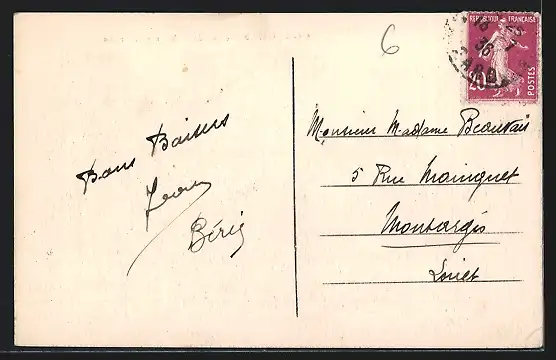 6
REPUBLIQUE FRANÇAISE
20c
POSTES
36
Bons Baisers
Jean
Béris
Monsieur Madame Beauvais
5 Rue Mainguet
Montargis
Loiret